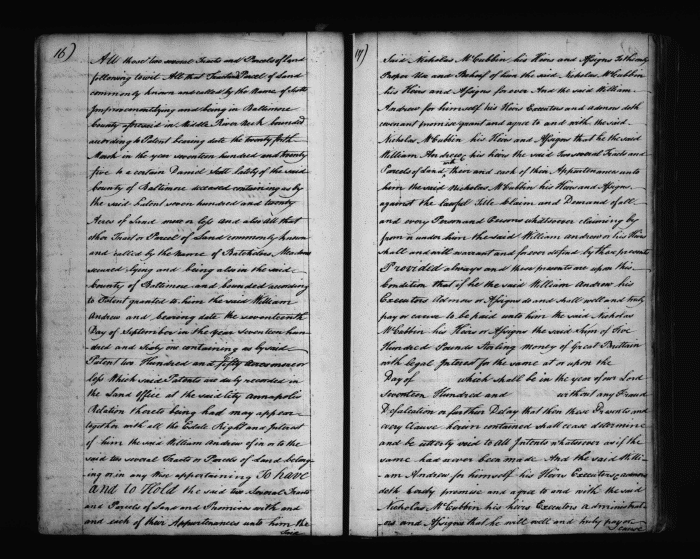 16)
All those two several Tracts and Parcels of Land
following to wit All that Tract and Parcel of Land
commonly known and called by the Name of
lying and being in Baltimore
County aforesaid in Middle River Neck bounded
according to Patent bearing date the twenty fifth
March in the year seventeen hundred and twenty
five to a certain Daniel Scott lately of the said
County of Baltimore deceased containing as by
the said Patent seven hundred and twenty
Acres of Land more or less and also all that
other Tract or Parcel of Land commonly known
and called by the Name of Batchelors Meadow
secured lying and being also in the said
County of Baltimore and bounded according
to Patent granted to him the said William
Andrew and bearing date the seventeenth
Day of September in the year Seventeen hun
dred and Sixty containing as by said
Patent two Hundred and fifty Acres more or
less Which said Patents are duly recorded in
the Land Office at the said City Annapolis
Relation thereto being had may appear
together with all the Estate Right and Interest
of him the said William Andrew of in or to the
said two several Tracts or Parcels of Land belong
ing or in any Wise appertaining To have
and to Hold the said two Several Tracts
and Parcels of Land and Premises with and
and each of their Appurtenances unto him the
Said
17)
Said Nicholas McCubbin his Heirs and Assigns To the only
Proper Use and Behoof of him the said Nicholas McCubbin
his Heirs and Assigns forever And the said William
Andrew for himself his Heirs Executors and admrs doth
covenant promise grant and agree to and with the said
Nicholas McCubbin his Heirs and Assigns that he the said
William Andrew his heirs the said Two several Tracts and
Parcels of Land with their and each of their Appurtenances unto
him the said Nicholas McCubbin his Heirs and Assigns
against the lawful Title Claim and Demand of all
and every Person and Persons whatsoever claiming by
from or under him the said William Andrew or his Heirs
Shall and will warrant and forever defend by these presents
Provided always and these presents are upon this
Condition that if he the said William Andrew his
Executors Admrs or Assigns do and shall well and truly
pay or cause to be paid unto him the said Nicholas
McCubbin his Heirs or Assigns the said Sum of Five
Hundred Pounds Sterling Money of Great Brittain
with legal Interest for the same at or upon the
Day of which shall be in the year of our Lord
Seventeen Hundred and without any Fraud
Defalcation or farther Delay that then these Presents and
every Clause herein contained shall cease determine
and be utterly void to all Intents whatsoever as if the
same had never been made And the said Willi
am Andrew for himself his Heirs Executors admrs
doth hereby promise and agree to and with the said
Nicholas McCubbin his heirs Executors administrat
ors and Assigns that he will well and truly pay or
cause